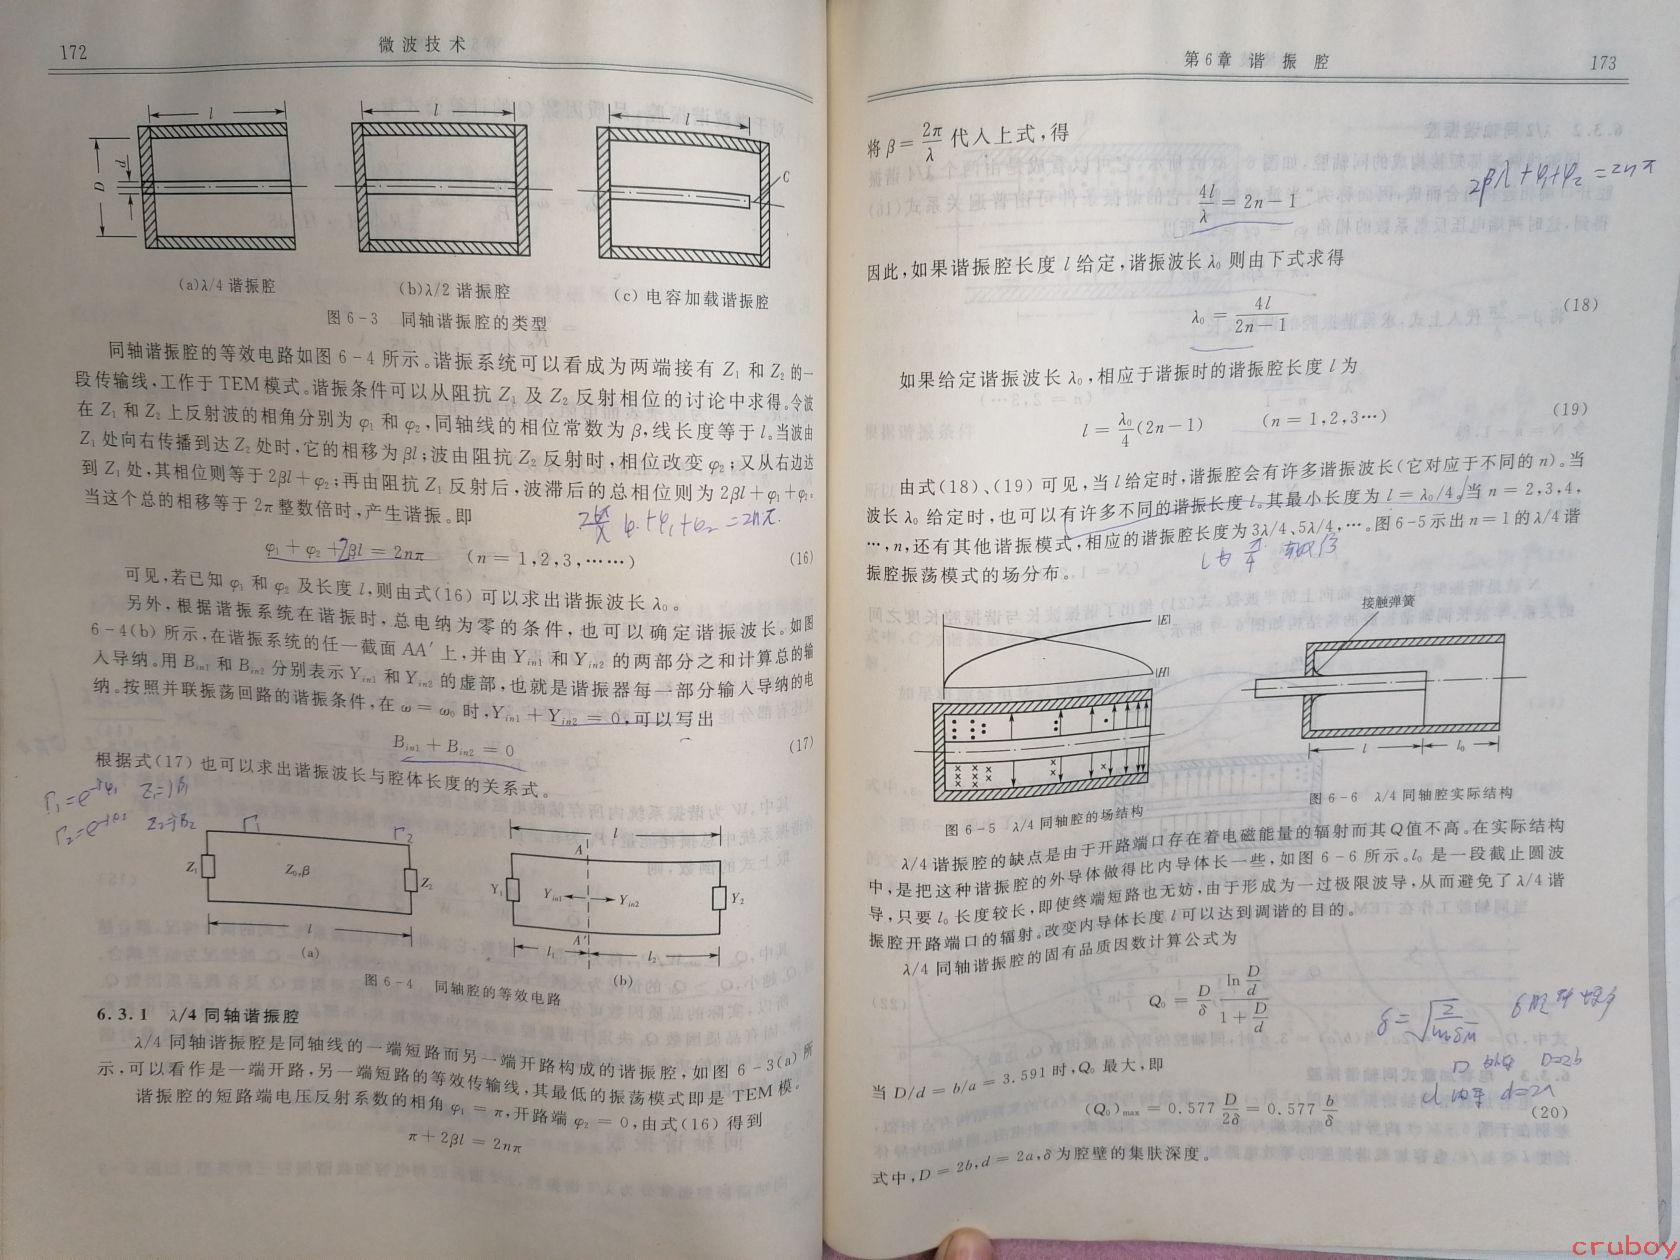 172
微波技术
l
D
d
l
l
C
(a)λ/4谐振腔
(b)λ/2谐振腔
(c)电容加载谐振腔
图6-3 同轴谐振腔的类型
同轴谐振腔的等效电路如图6-4所示。谐振系统可以看成为两端接有Z₁和Z₂的一
段传输线,工作于TEM模式。谐振条件可以从阻抗Z₁及Z₂反射相位的讨论中求得。令波
在Z₁和Z₂上反射波的相角分别为φ₁和φ₂,同轴线的相位常数为β,线长度等于l。当波由
Z₁处向右传播到达Z₂处时,它的相移为βl;波由阻抗Z₂反射时,相位改变φ₂;又从右边达
到Z₁处,其相位则等于2βl+φ₂;再由阻抗Z₁反射后,波滞后的总相位则为2βl+φ₁+φ₂。
当这个总的相移等于2π整数倍时,产生谐振。即
φ₁+φ₂+2βl=2nπ (n=1,2,3,……) (16)
可见,若已知φ₁和φ₂及长度l,则由式(16)可以求出谐振波长λ₀。
另外,根据谐振系统在谐振时,总电纳为零的条件,也可以确定谐振波长。如图
6-4(b)所示,在谐振系统的任一截面AA′上,并由Yin1和Yin2的两部分之和计算总的输
入导纳。用Bin1和Bin2分别表示Yin1和Yin2的虚部,也就是谐振器每一部分输入导纳的电
纳。按照并联振荡回路的谐振条件,在ω=ω₀时,Yin1+Yin2=0,可以写出
Bin1+Bin2=0 (17)
根据式(17)也可以求出谐振波长与腔体长度的关系式。
Γ₁
Γ₂
Z₁
Z₀,β
Z₂
l
(a)
l
A
Y₁
Yin1
Yin2
Y₂
A′
l₁
l₂
(b)
图6-4 同轴腔的等效电路
6.3.1 λ/4同轴谐振腔
λ/4同轴谐振腔是同轴线的一端短路而另一端开路构成的谐振腔,如图6-3(a)所
示,可以看作是一端开路,另一端短路的等效传输线,其最低的振荡模式即是TEM模。
谐振腔的短路端电压反射系数的相角φ₁=π,开路端φ₂=0,由式(16)得到
π+2βl=2nπ
第6章 谐振腔
173
将β=2π/λ代入上式,得
2βl+φ₁+φ₂=2nπ
4l/λ=2n-1
因此,如果谐振腔长度l给定,谐振波长λ₀则由下式求得
λ₀=4l/(2n-1) (18)
如果给定谐振波长λ₀,相应于谐振时的谐振腔长度l为
l=λ₀/4(2n-1) (n=1,2,3…) (19)
由式(18)、(19)可见,当l给定时,谐振腔会有许多谐振波长(它对应于不同的n)。当
波长λ₀给定时,也可以有许多不同的谐振长度l。其最小长度为l=λ₀/4。当n=2,3,4,
…,n,还有其他谐振模式,相应的谐振腔长度为3λ/4、5λ/4,…。图6-5示出n=1的λ/4谐
振腔振荡模式的场分布。
|E|
|H|
图6-5 λ/4同轴腔的场结构
接触弹簧
l
l₀
图6-6 λ/4同轴腔实际结构
λ/4谐振腔的缺点是由于开路端口存在着电磁能量的辐射而其Q值不高。在实际结构
中,是把这种谐振腔的外导体做得比内导体长一些,如图6-6所示。l₀是一段截止圆波
导,只要l₀长度较长,即使终端短路也无妨,由于形成为一过极限波导,从而避免了λ/4谐
振腔开路端口的辐射。改变内导体长度l可以达到调谐的目的。
λ/4同轴谐振腔的固有品质因数计算公式为
Q₀=D/δ·ln(D/d)/(1+D/d)
D=2b
d=2a
当D/d=b/a=3.591时,Q₀最大,即
(Q₀)max=0.577D/2δ=0.577b/δ (20)
式中,D=2b,d=2a,δ为腔壁的集肤深度。
cruboy